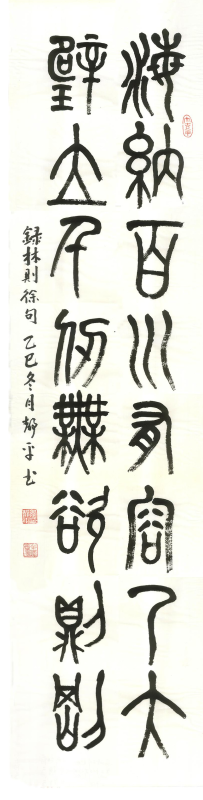 海納百川有容乃大
壁立千仞無欲則剛
録林则徐句 乙巳冬月 平书